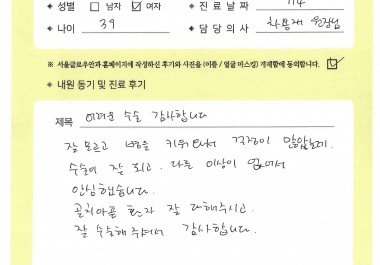 성별 남자 여자
진료 날짜
나이 39
담당의사 차흥재 원장님
※ 서울글로우안과 홈페이지에 작성하신 후기와 사진을 (이름 / 얼굴 마스킹) 게재함에 동의합니다.
내원 동기 및 진료 후기
제목 어려운 수술 감사합니다
잘 모르고 병을 키워와서 걱정이 많았는데
수술이 잘 되고. 다른 이상이 없어서
안심했습니다.
골치아픈 환자 잘 대해주시고.
잘 수술해주셔서 감사합니다.